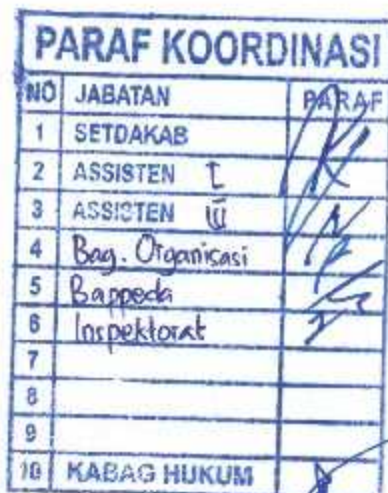 PARAF KOORDINASI
NO JABATAN PARAF
1 SETDAKAB
2 ASSISTEN I
3 ASSISTEN III
4 Bag. Organisasi
5 Bappeda
6 Inspektorat
7
8
9
10 KABAG HUKUM